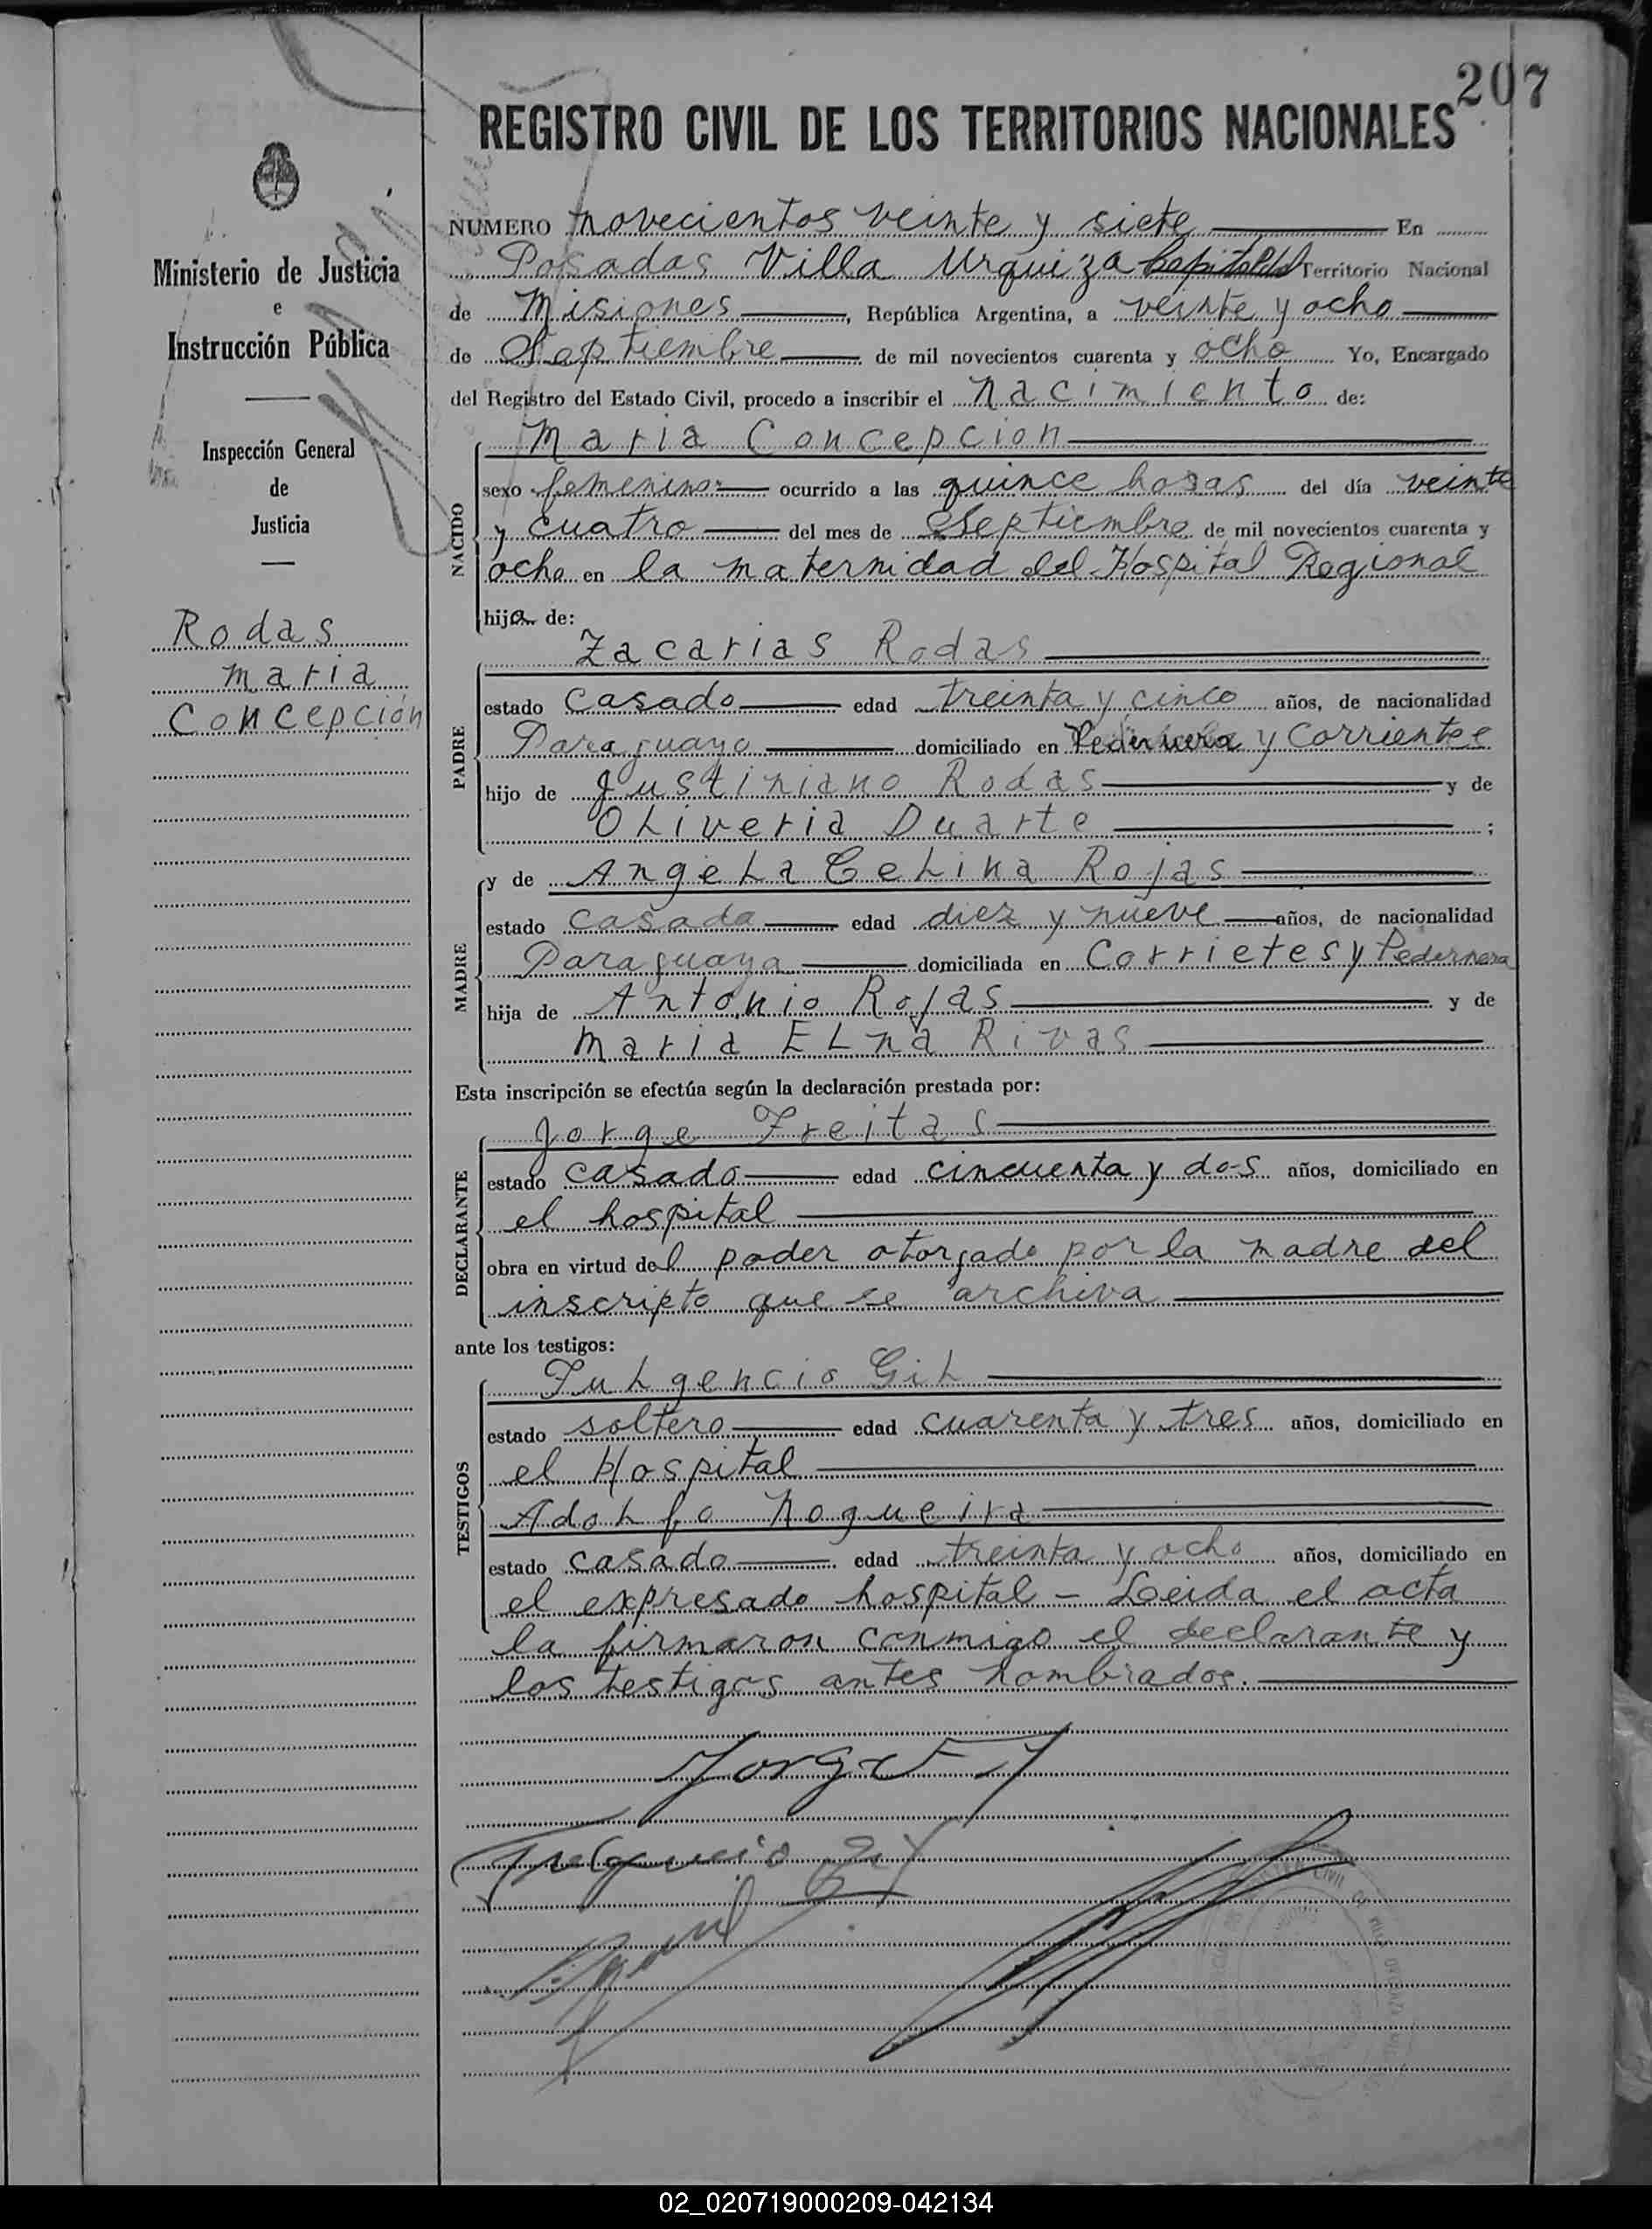 207
REGISTRO CIVIL DE LOS TERRITORIOS NACIONALES
Ministerio de Justicia
e
Instrucción Pública
Inspección General
de
Justicia
Rodas
Maria
Concepción
NUMERO novecientos veinte y siete En
Posadas Villa Urquiza Capital del Territorio Nacional
de Misiones, República Argentina, a veinte y ocho
de Septiembre de mil novecientos cuarenta y ocho Yo, Encargado
del Registro del Estado Civil, procedo a inscribir el nacimiento de:
NACIDO
Maria Concepcion
sexo femenino ocurrido a las quince horas del día veinte
y cuatro del mes de Septiembre de mil novecientos cuarenta y
ocho en la maternidad del Hospital Regional
hija de:
PADRE
Zacarias Rodas
estado casado edad treinta y cinco años, de nacionalidad
Paraguayo domiciliado en Pedernera y Corrientes
hijo de Justiniano Rodas y de
Oliveria Duarte ;
MADRE
y de Angela Celina Rojas
estado casada edad diez y nueve años, de nacionalidad
Paraguaya domiciliada en Corrietes y Pedernera
hija de Antonio Rojas y de
Maria Elna Rivas
Esta inscripción se efectúa según la declaración prestada por:
DECLARANTE
Jorge Freitas
estado casado edad cincuenta y dos años, domiciliado en
el hospital
obra en virtud del poder otorgado por la madre del
inscripto que se archiva
ante los testigos:
TESTIGOS
Fulgencio Gil
estado soltero edad cuarenta y tres años, domiciliado en
el Hospital
Adolfo Nogueira
estado casado edad treinta y ocho años, domiciliado en
el expresado hospital - Leida el acta
la firmaron conmigo el declarante y
los testigos antes nombrados.
02_020719000209-042134